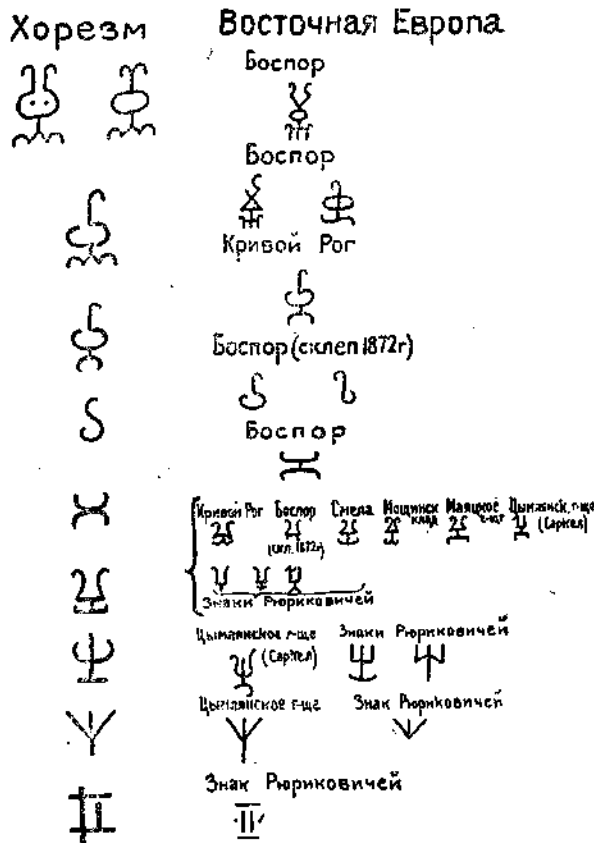 Хорезм
Восточная Европа
Боспор
Боспор
Кривой Рог
Боспор (склеп 1872г)
Боспор
Кривой Рог Боспор Смела Мощинск Маяцкое Цымлянск. г-ще
(скл. 1872г) клад г-ще (Саркел)
Знаки Рюриковичей
Цымлянское г-ще Знаки Рюриковичей
(Саркел)
Цымлянское г-ще Знак Рюриковичей
Знак Рюриковичей